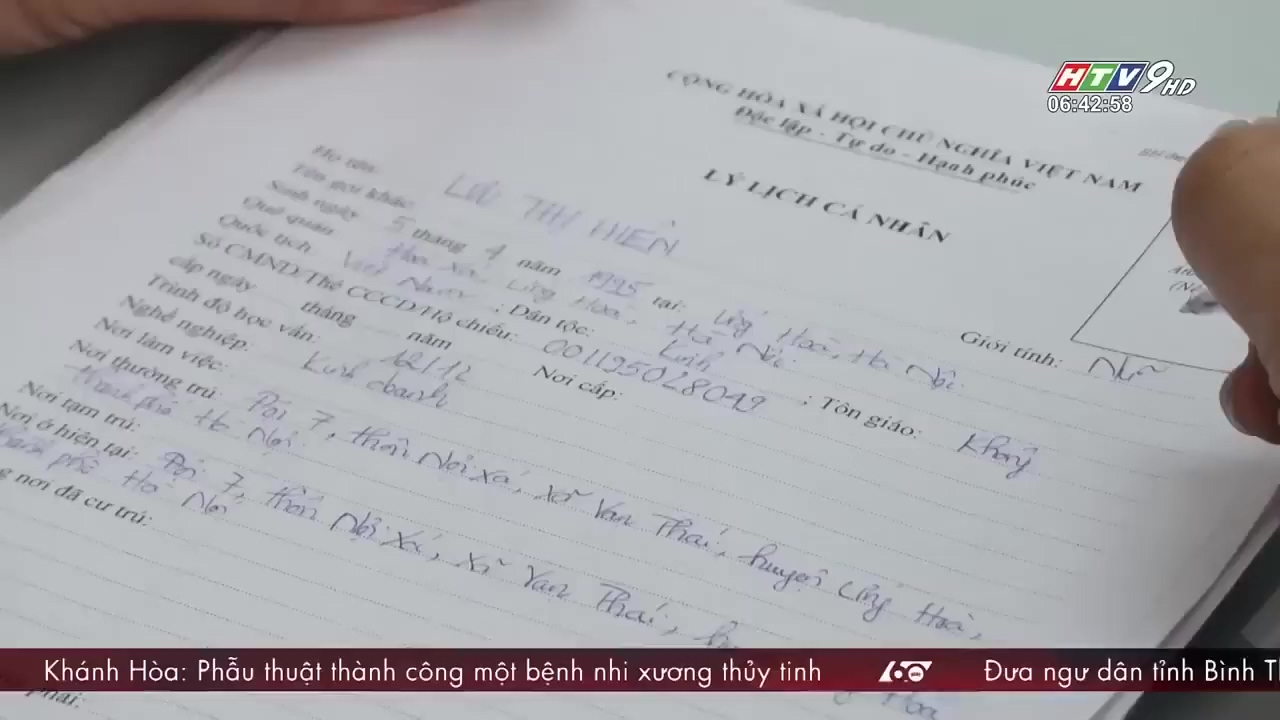 HTV9 HD
06:42:58
CỘNG HÒA XÃ HỘI CHỦ NGHĨA VIỆT NAM
Độc lập - Tự do - Hạnh phúc
LÝ LỊCH CÁ NHÂN
Họ tên: LƯU THỊ HIỀN
Giới tính: Nữ
Tên gọi khác
Sinh ngày 5 tháng 4 năm 1995 tại: Ứng Hoà, Hà Nội
Quê quán Hoa Xá, Ứng Hoà, Hà Nội
Quốc tịch: Việt Nam ; Dân tộc: Kinh ; Tôn giáo: Không
Số CMND/Thẻ CCCD/Hộ chiếu: 001195028049
cấp ngày tháng năm Nơi cấp:
Trình độ học vấn: 12/12
Nghề nghiệp: Kinh doanh
Nơi làm việc:
Nơi thường trú: Đội 7, thôn Nội Xá, xã Vạn Thái, huyện Ứng Hoà,
thành phố Hà Nội
Nơi tạm trú:
Nơi ở hiện tại: Đội 7, thôn Nội Xá, xã Vạn Thái,
thành phố Hà Nội
nơi đã cư trú:
Hoà
phải:
Khánh Hòa: Phẫu thuật thành công một bệnh nhi xương thủy tinh
60 giây
Đưa ngư dân tỉnh Bình